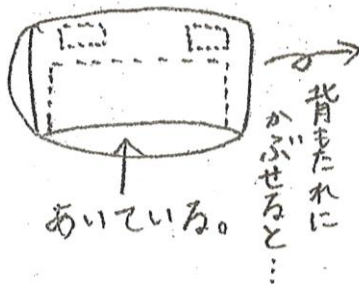 あいている。
背もたれに
かぶせると…